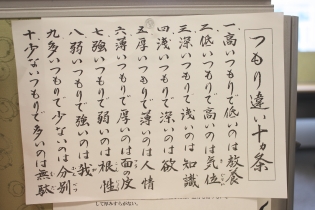 つもり違い十ヵ条
一、高いつもりで低いのは教養
二、低いつもりで高いのは気位
三、深いつもりで浅いのは知識
四、浅いつもりで深いのは欲
五、厚いつもりで薄いのは人情
六、薄いつもりで厚いのは面の皮
七、強いつもりで弱いのは根性
八、弱いつもりで強いのは我
九、多いつもりで少ないのは分別
十、少ないつもりで多いのは無駄